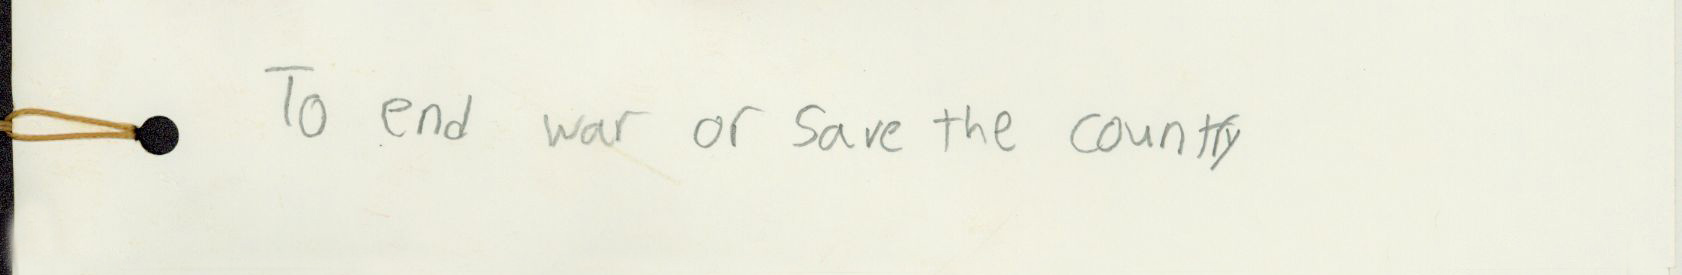 To end war or save the country